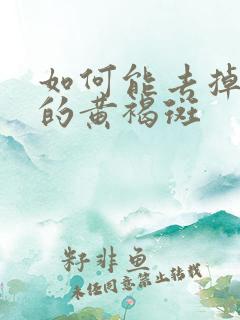 如何能去掉
的黄褐斑
籽非鱼
未经同意禁止转载